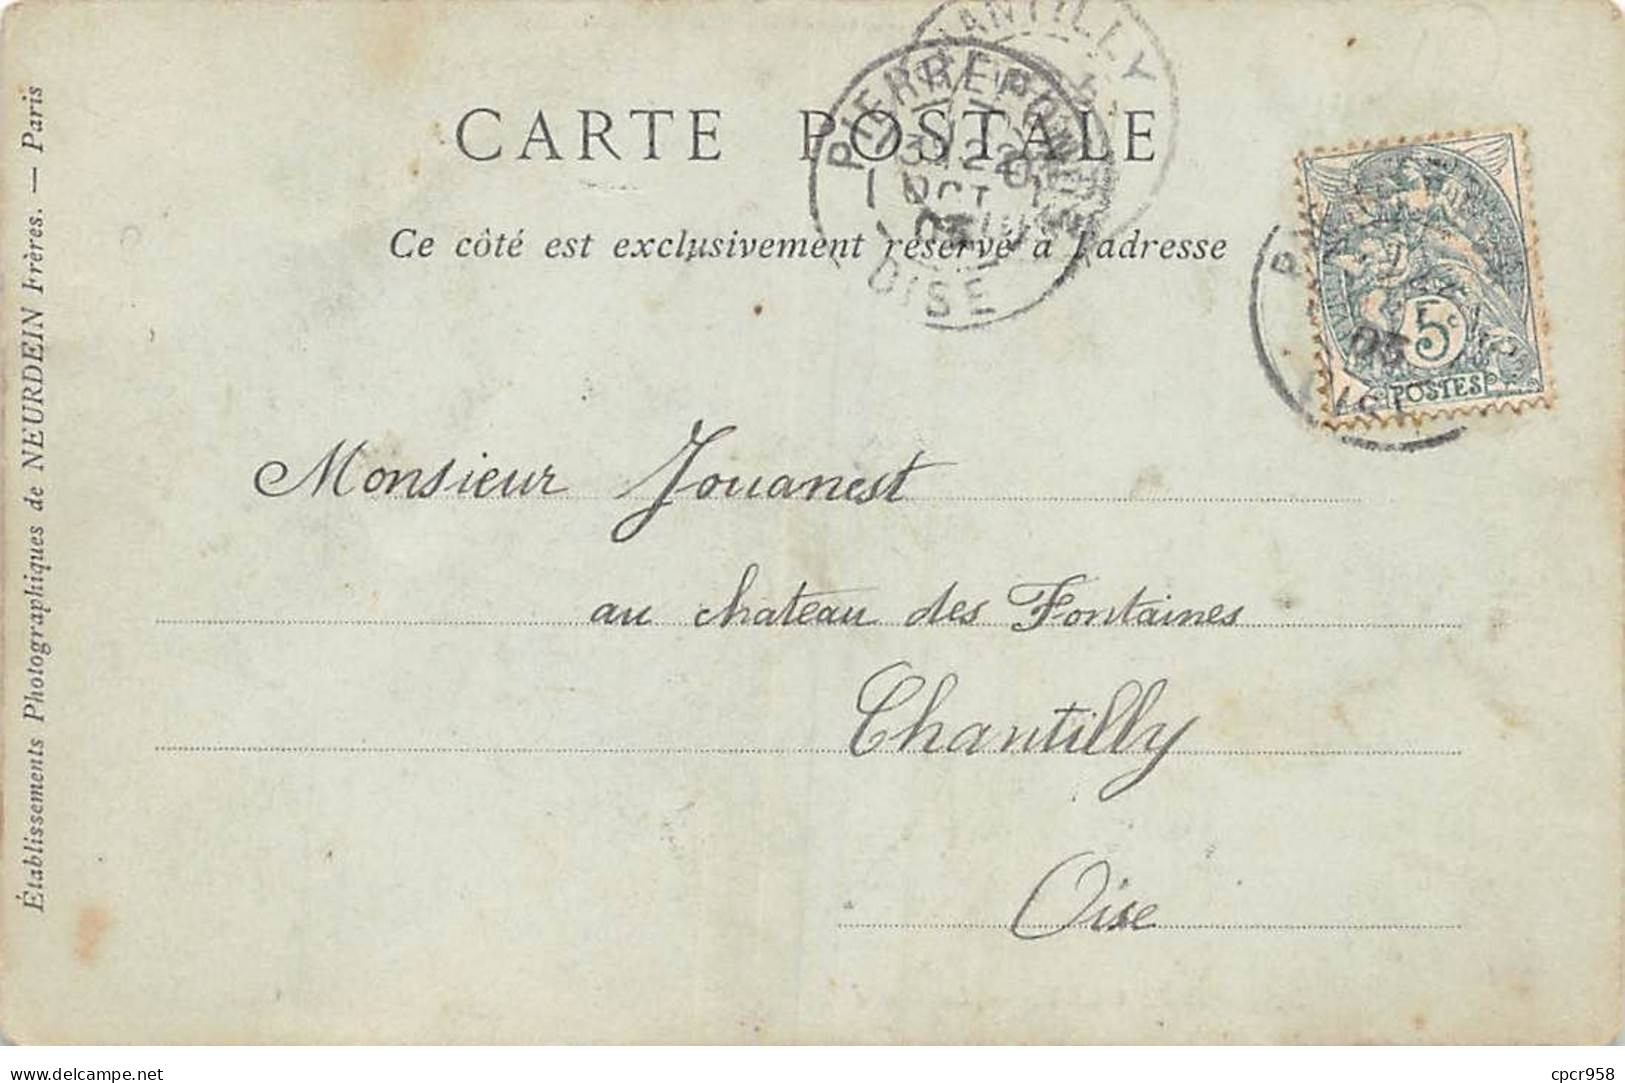 CARTE POSTALE
Ce côté est exclusivement réservé à l'adresse
Établissements Photographiques de NEURDEIN Frères. — Paris
CHANTILLY
PIERREFONDS
OCT
03
OISE
5c
POSTES
Monsieur Jouanest
au chateau des Fontaines
Chantilly
Oise
delcampe.net
cpcr958